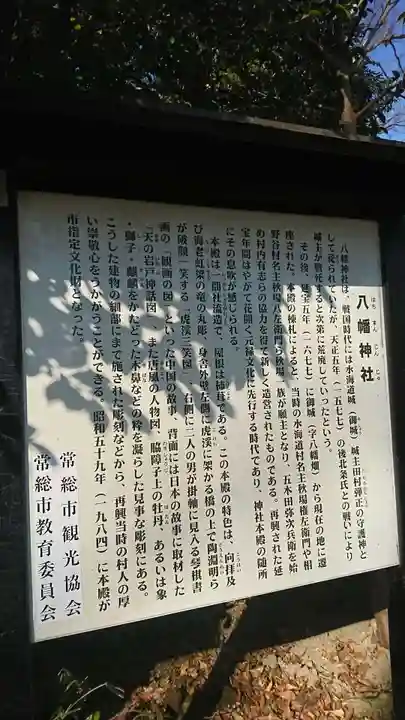 八幡神社
はちまんじんじゃ
八幡神社は、戦国時代には水海道城(御城)城主田村弾正の守護神と
して祀られていたが、天正五年(一五七七)の後北条氏との戦いにより
城主が戦死すると次第に荒廃していったという。
その後、延宝五年(一六七七)に御城(字八幡畑)から現在の地に遷
座された。本殿の棟札によると、当時の水海道村名主秋場権左衛門や相
野谷村名主秋場八左衛門ら秋場一族が願主となり、五木田弥次兵衛を始
め村内有志らの協力を得て新しく造営されたものである。再興された延
宝年間はやがて花開く元禄文化に先行する時代であり、神社本殿の随所
にその息吹が感じられる。
本殿は一間社流造で、屋根は柿葺である。この本殿の特色は、向拝及
び海老虹梁の竜の丸彫、身舎外壁左側に虎渓に架かる橋の上で陶淵明ら
が破顔一笑する「虎渓三笑図」、右側に三人の男が掛軸に見入る琴棋書
画の「観画の図」といった中国の故事、背面には日本の故事に取材した
「天の岩戸神話図」、また唐風の人物図、脇障子上の牡丹、あるいは象
・獅子・麒麟をかたどった木鼻などの粋を凝らした見事な彫刻にある。
こうした建物の細部にまで施された彫刻などから、再興当時の村人の厚
い崇敬心をうかがうことができる。昭和五十九年(一九八四)に本殿が
市指定文化財となった。
常総市観光協会
常総市教育委員会